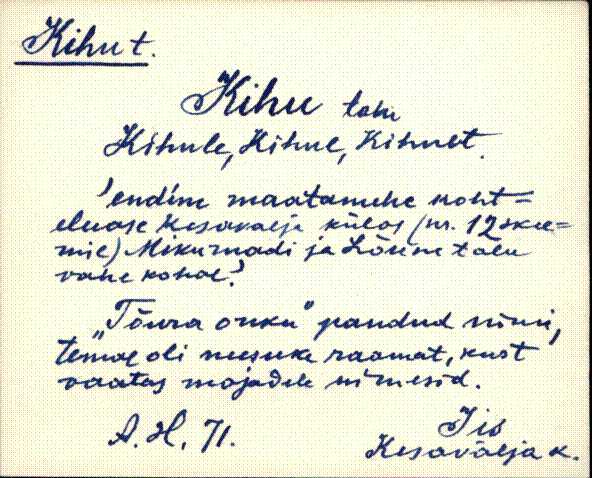 Kihu t.
Kihu talu
Kihule, Kihul, Kihult.
'endine maatamehe koht=
eluase Kesavälja külas (nr. 12 skee=
mil) Mikumadi ja Lõune talu
vahe kohal.'
"Tõura onku" pandud nimi,
temal oli niisuke raamat, kust
vaatas majadele nimesid.
A. H. 71.
Jis
Kesavälja k.